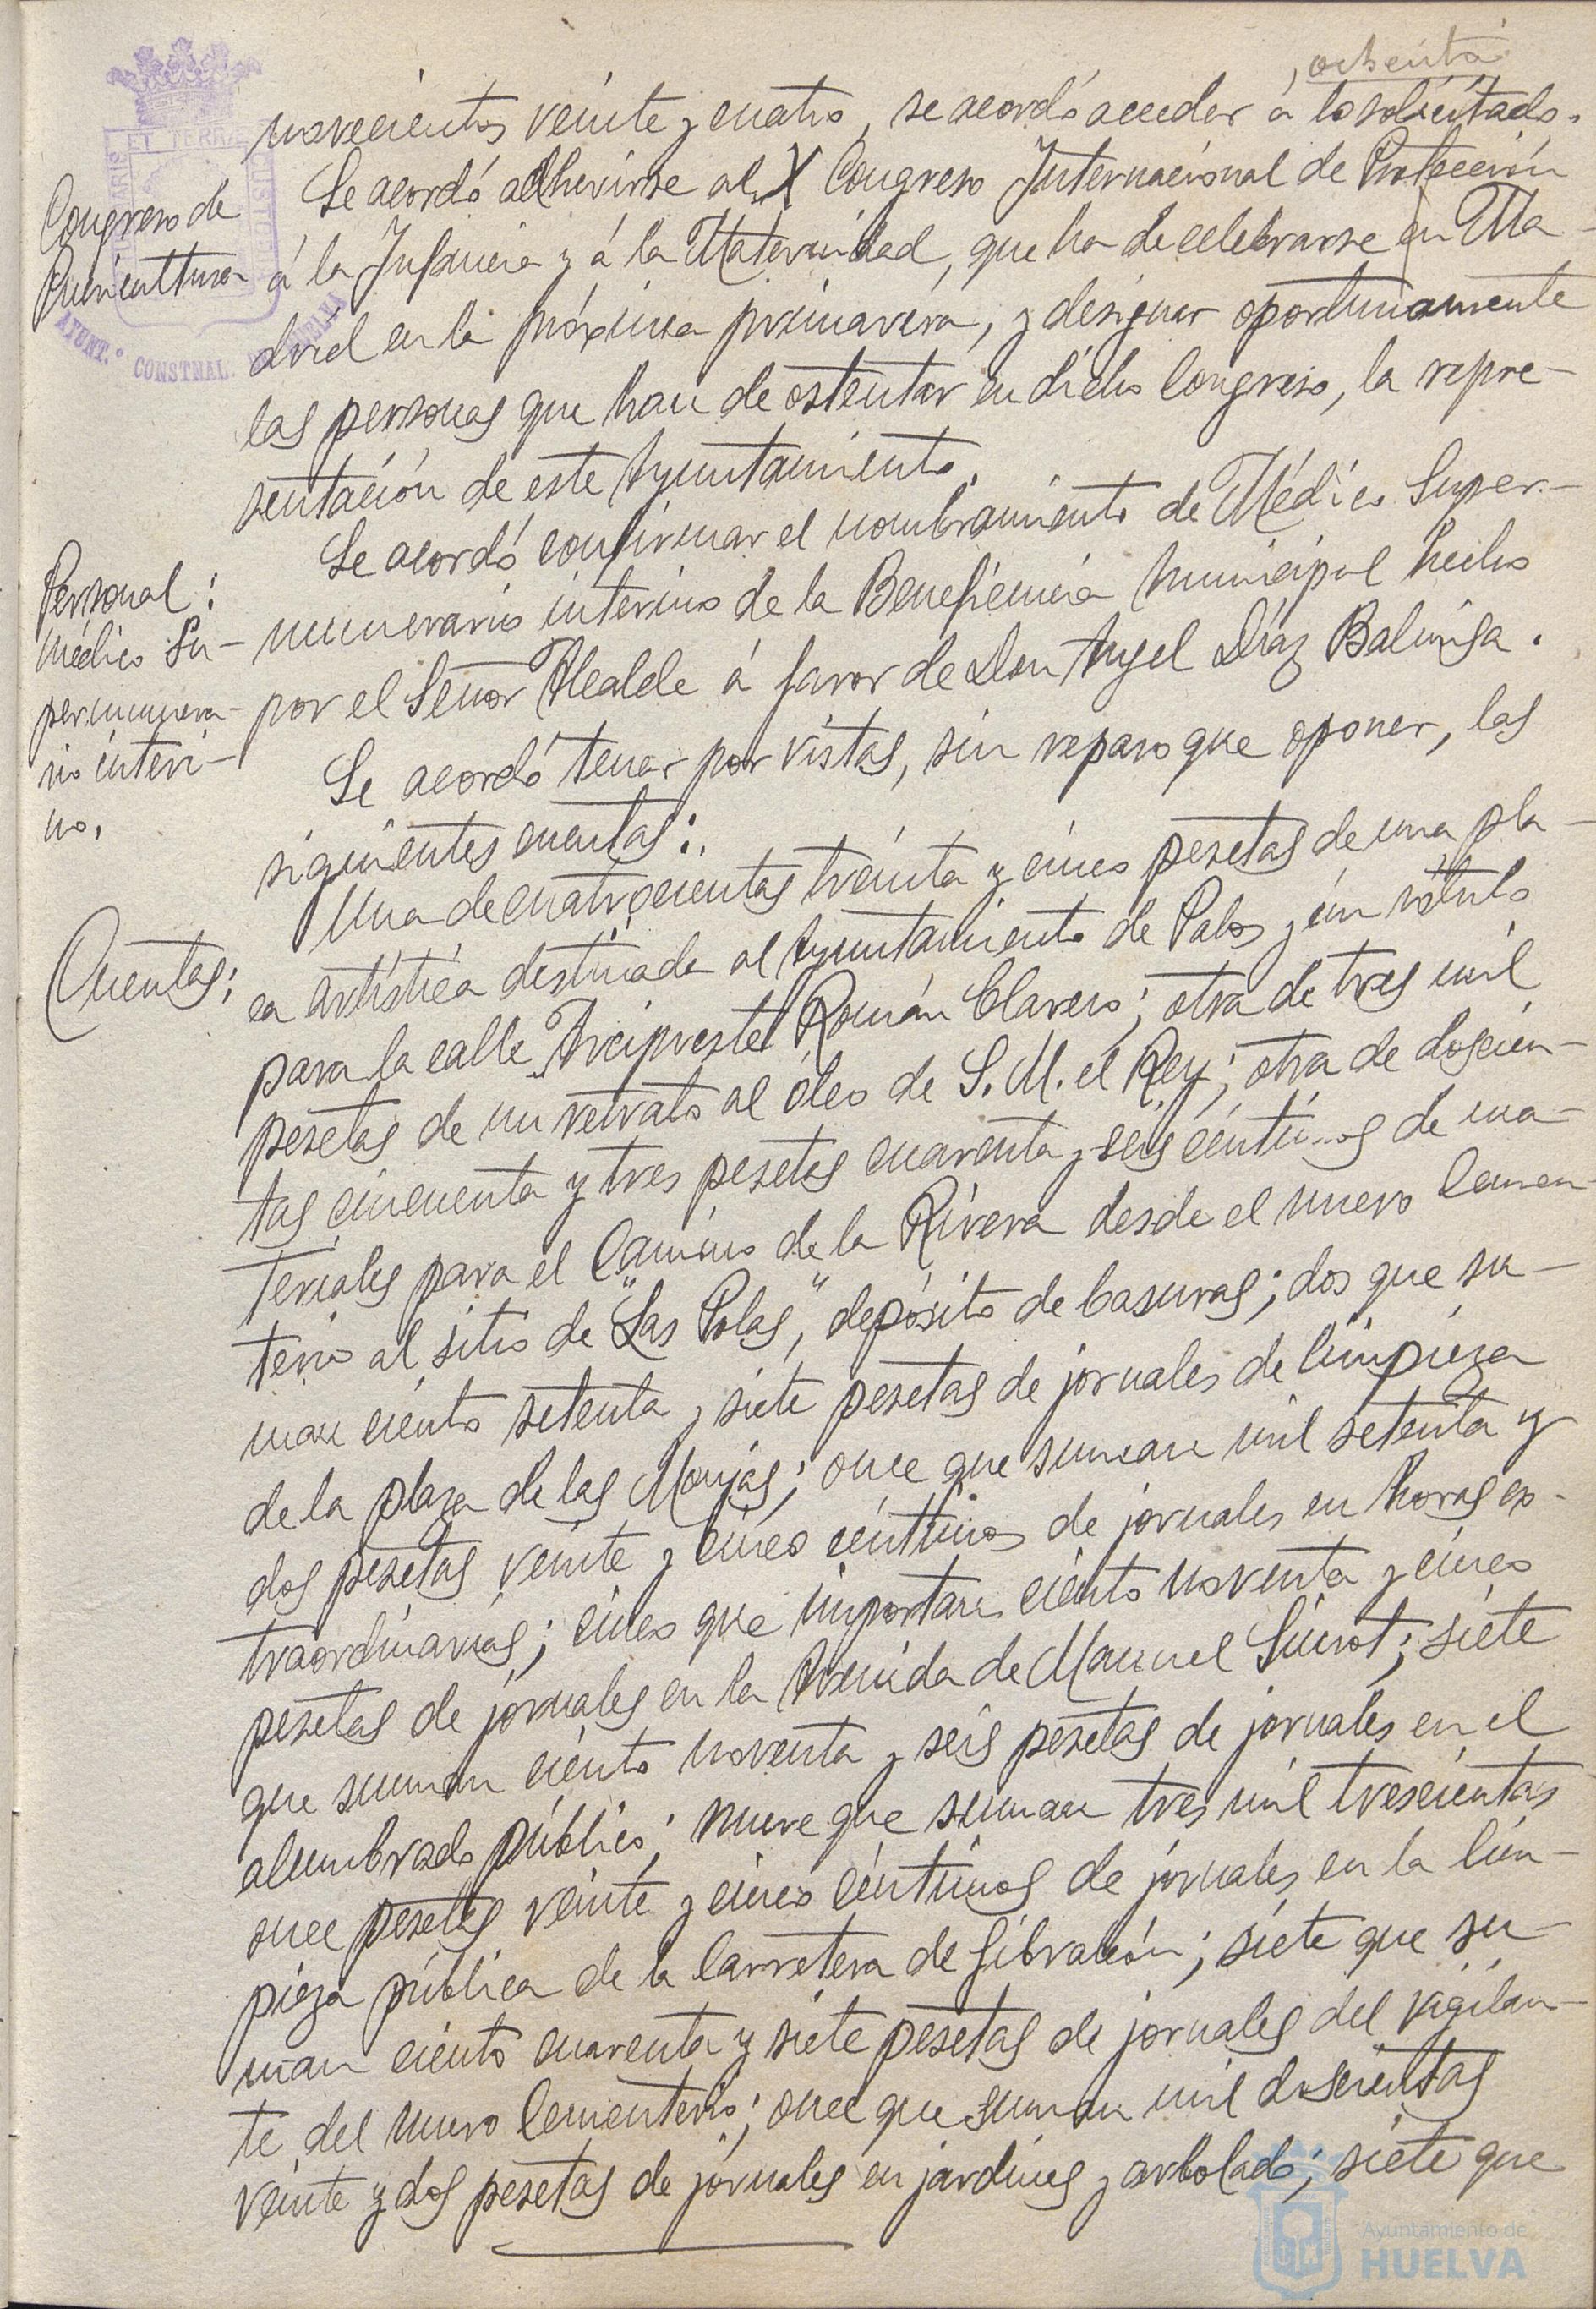 , ochenta
novecientos veinte y cuatro, se acordó acceder á lo solicitado.
Congreso de
Puericultura
Se acordó adherirse al X Congreso Internacional de Protección
á la Infancia y á la Maternidad, que ha de celebrarse en Ma-
drid en la próxima primavera, y designar oportunamente
las personas que han de ostentar en dicho Congreso, la repre-
sentación de este Ayuntamiento.
Personal:
Médico Su-
pernumera-
rio interi-
no.
Se acordó confirmar el nombramiento de Médico Super-
numerario interino de la Beneficencia Municipal hecho
por el Señor Alcalde á favor de Don Angel Díaz
Se acordó tener por vistas, sin reparo que oponer, las
siguientes cuentas:.
Cuentas:
Una de cuatrocientas treinta y cinco pesetas de una pla-
ca artística destinada al Ayuntamiento de Palos y un rótulo
para la calle Arcipreste Román Clavero; otra de tres mil
pesetas de un retrato al óleo de S. M. el Rey; otra de doscien-
tas cincuenta y tres pesetas cuarenta y seis céntimos de ma-
teriales para el Camino de la Rivera desde el nuevo Cemen-
terio al sitio de "Las Polas", depósito de basuras; dos que su-
man ciento setenta y siete pesetas de jornales de limpieza
de la plaza de las Monjas; once que suman mil setenta y
dos pesetas veinte y cinco céntimos de jornales en horas ex-
traordinarias; cinco que importan ciento noventa y cinco
pesetas de jornales en la Avenida de Manuel Siurot; siete
que suman ciento noventa y seis pesetas de jornales en el
alumbrado público; nueve que suman tres mil trescientas
once pesetas veinte y cinco céntimos de jornales en la lim-
pieza pública de la Carretera de Gibraleón; siete que su-
man ciento cuarenta y siete pesetas de jornales del vigilan-
te del nuevo Cementerio; once que suman mil doscientas
veinte y dos pesetas de jornales en jardines y arbolado; siete que
ET TERRAE
CUSTODIA
AYUNT.º CONSTNAL. HUELVA
Ayuntamiento de
HUELVA